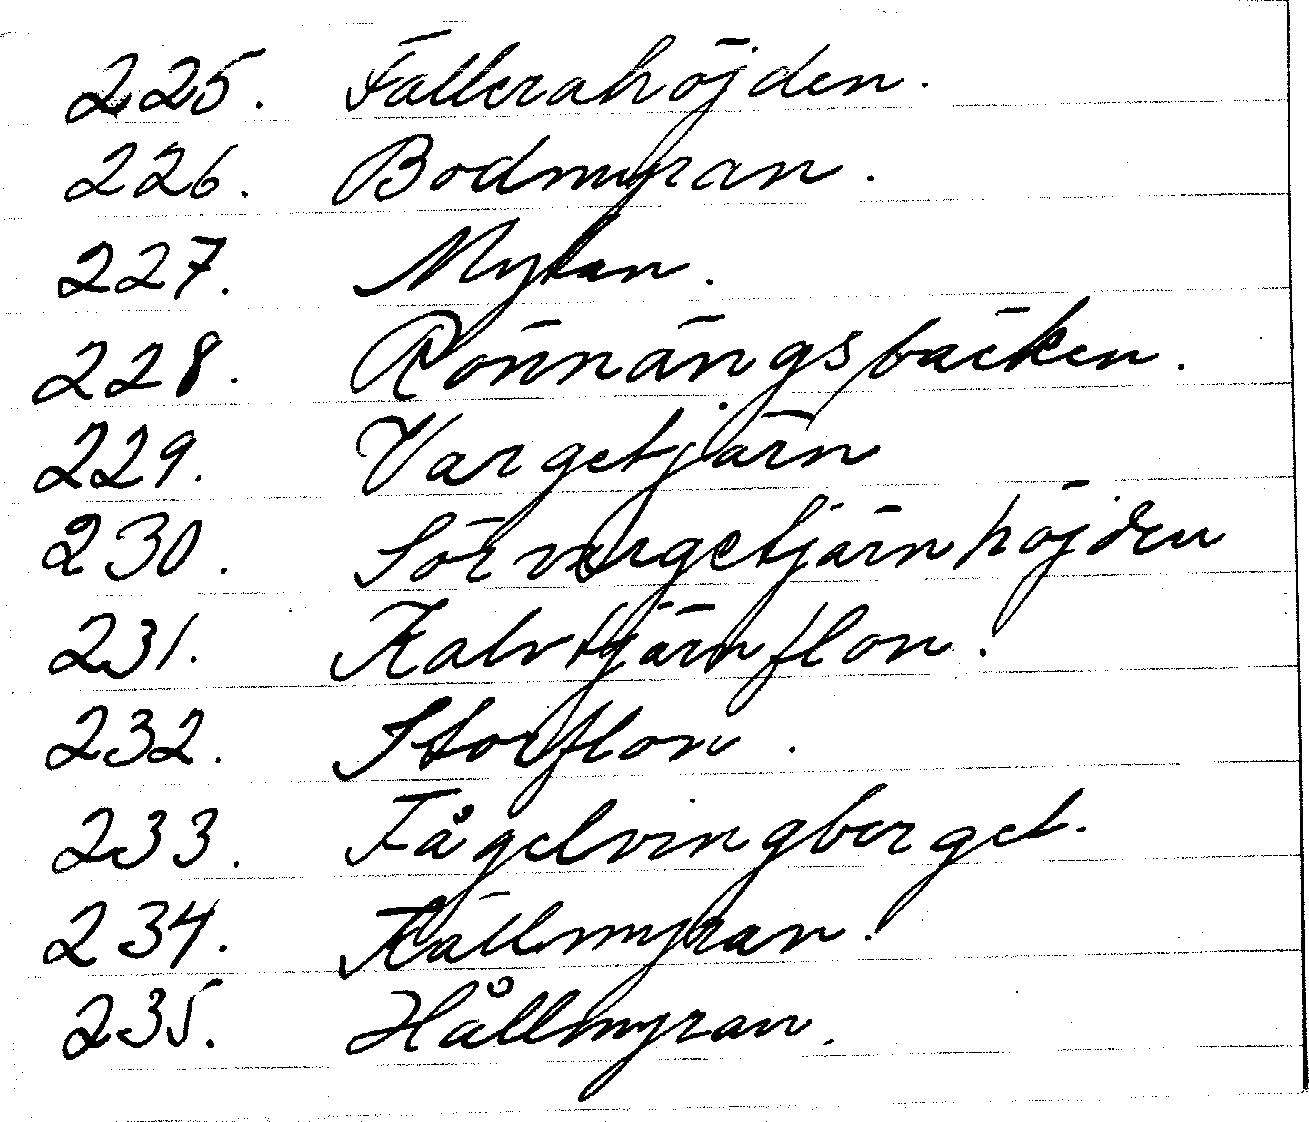 225. Fallerahöjden.
226. Bodmyran.
227. Mytan.
228. Rönnängsbäcken.
229. Vargetjärn
230. Sör vargetjärnhöjden
231. Kalvtjärnflon.
232. Storflon.
233. Fågelvingberget.
234. Källmyran.
235. Hållmyran.